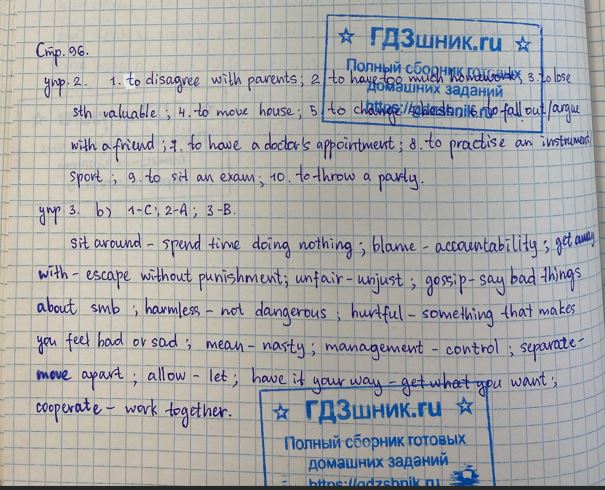 ☆ ГДЗшник.ru ☆
Стр. 96.
Полный сборник готовых
упр. 2. 1. to disagree with parents; 2. to have too much homework; 3. to lose
домашних заданий
sth valuable; 4. to move house; 5. to change school; 6. to fall out/argue
with a friend; 7. to have a doctor's appointment; 8. to practise an instrument
sport; 9. to sit an exam; 10. to throw a party.
упр 3. b) 1-C; 2-A; 3-B.
sit around - spend time doing nothing; blame - accountability; get away
with - escape without punishment; unfair - unjust; gossip - say bad things
about smb; harmless - not dangerous; hurtful - something that makes
you feel bad or sad; mean - nasty; management - control; separate -
move apart; allow - let; have it your way - get what you want;
cooperate - work together.
☆ ГДЗшник.ru ☆
Полный сборник готовых
домашних заданий
https://gdzshnik.ru